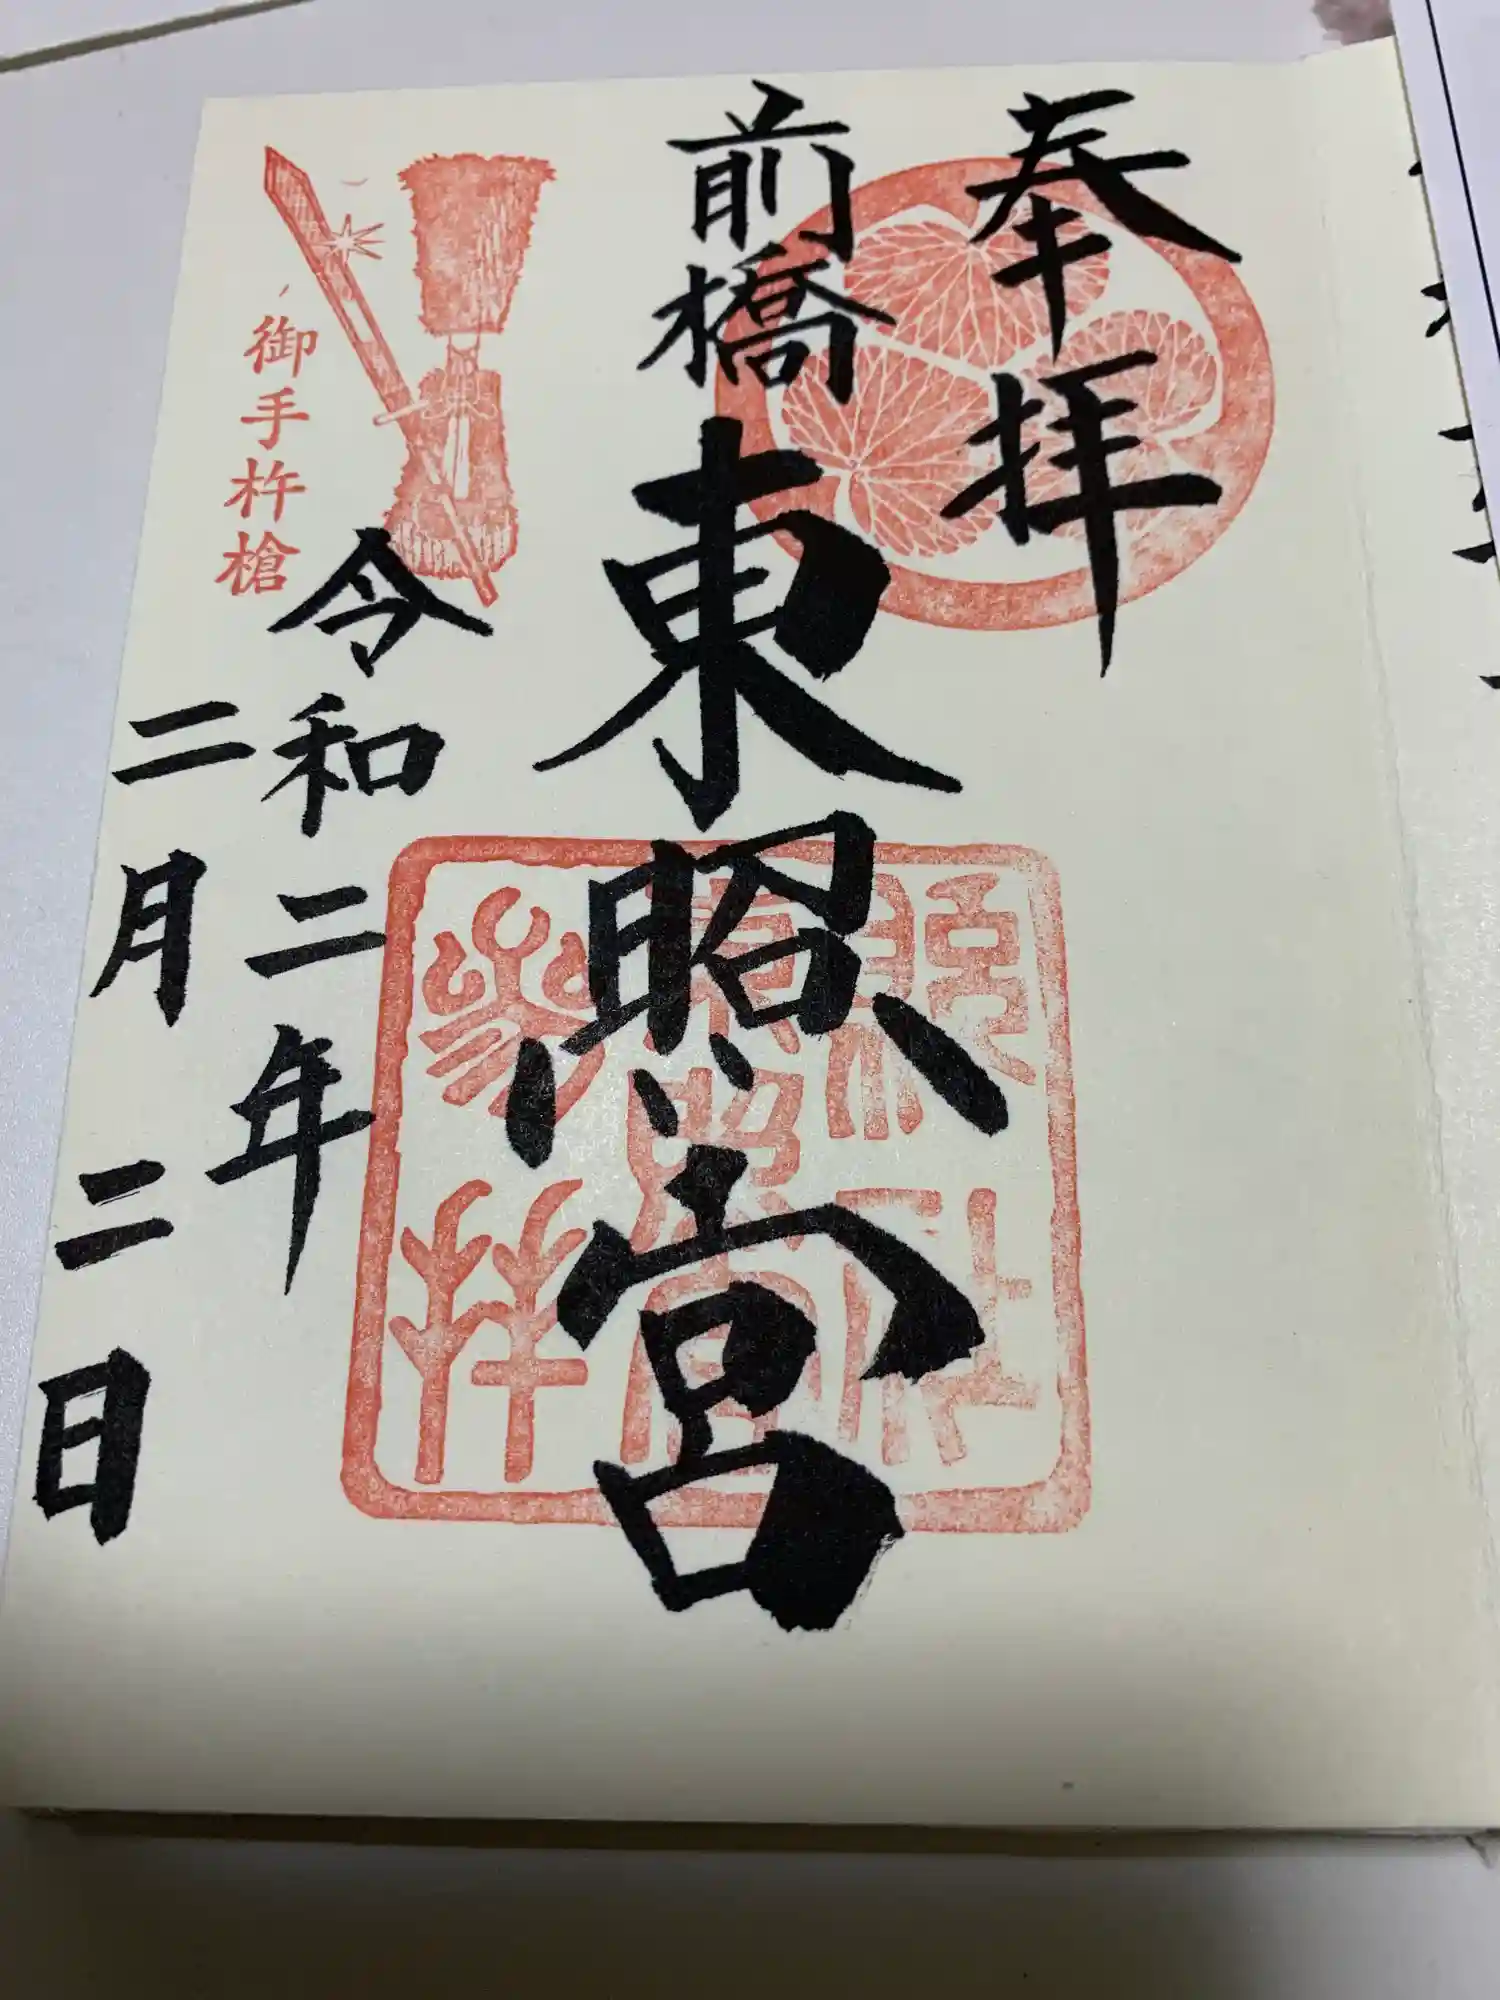 奉拝
前橋
東照宮
縣社
東照宮
参拝
令和二年
二月二日
御手杵槍